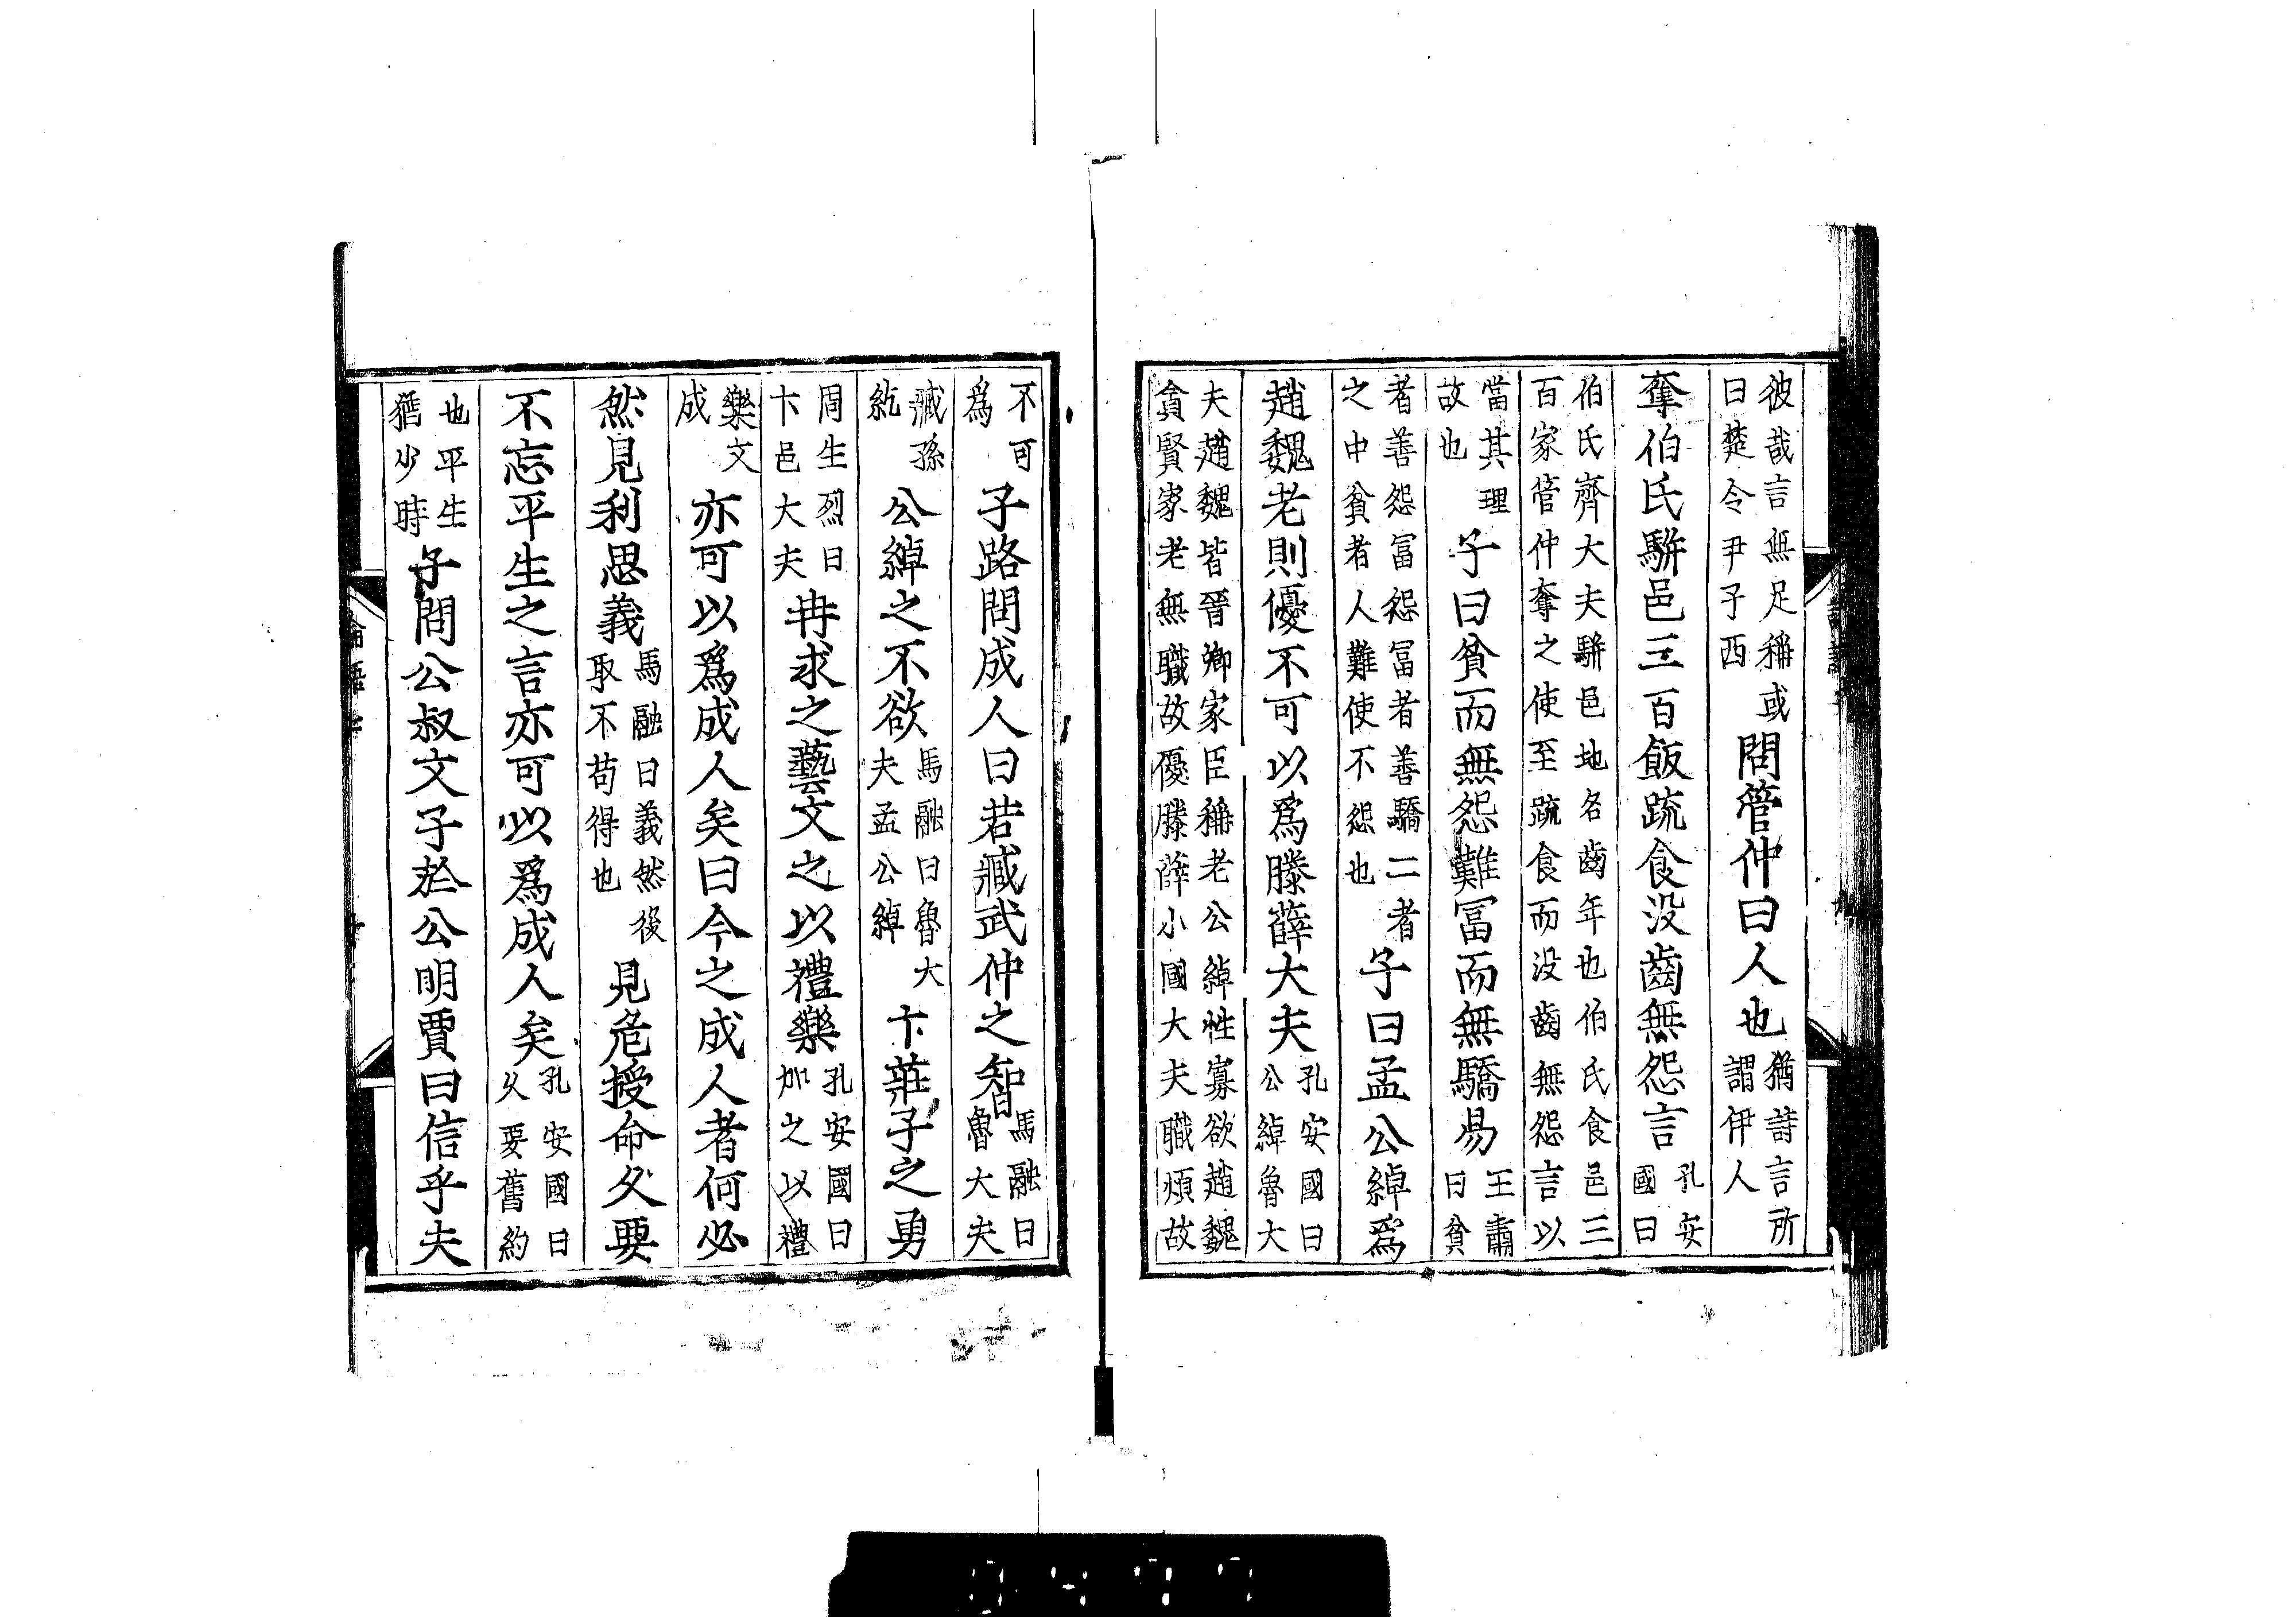 彼哉言無足稱或曰楚令尹子西問管仲曰人也猶詩言所謂伊人
奪伯氏駢邑三百飯疏食没齒無怨言孔安國曰
伯氏齊大夫駢邑地名齒年也伯氏食邑三
百家管仲奪之使至疏食而没齒無怨言以
當其理故也子曰貧而無怨難冨而無驕易王肅曰貧
者善怨冨怨冨者善驕二者之中貧者人難使不怨也子曰孟公綽爲
趙魏老則優不可以爲滕薛大夫孔安國曰公綽魯大
夫趙魏皆晉卿家臣稱老公綽性寡欲趙魏
貪賢家老無職故優滕薛小國大夫職煩故
不可爲子路問成人曰若臧武仲之智馬融曰魯大夫
臧孫紇公綽之不欲馬融曰魯大夫孟公綽卞莊子之勇
周生烈曰卞邑大夫冉求之藝文之以禮樂孔安國曰加之以禮
樂文成亦可以爲成人矣曰今之成人者何必
然見利思義馬融曰義然後取不苟得也見危授命久要
不忘平生之言亦可以爲成人矣孔安國曰久要舊約
也平生猶少時子問公叔文子於公明賈曰信乎夫
論語七